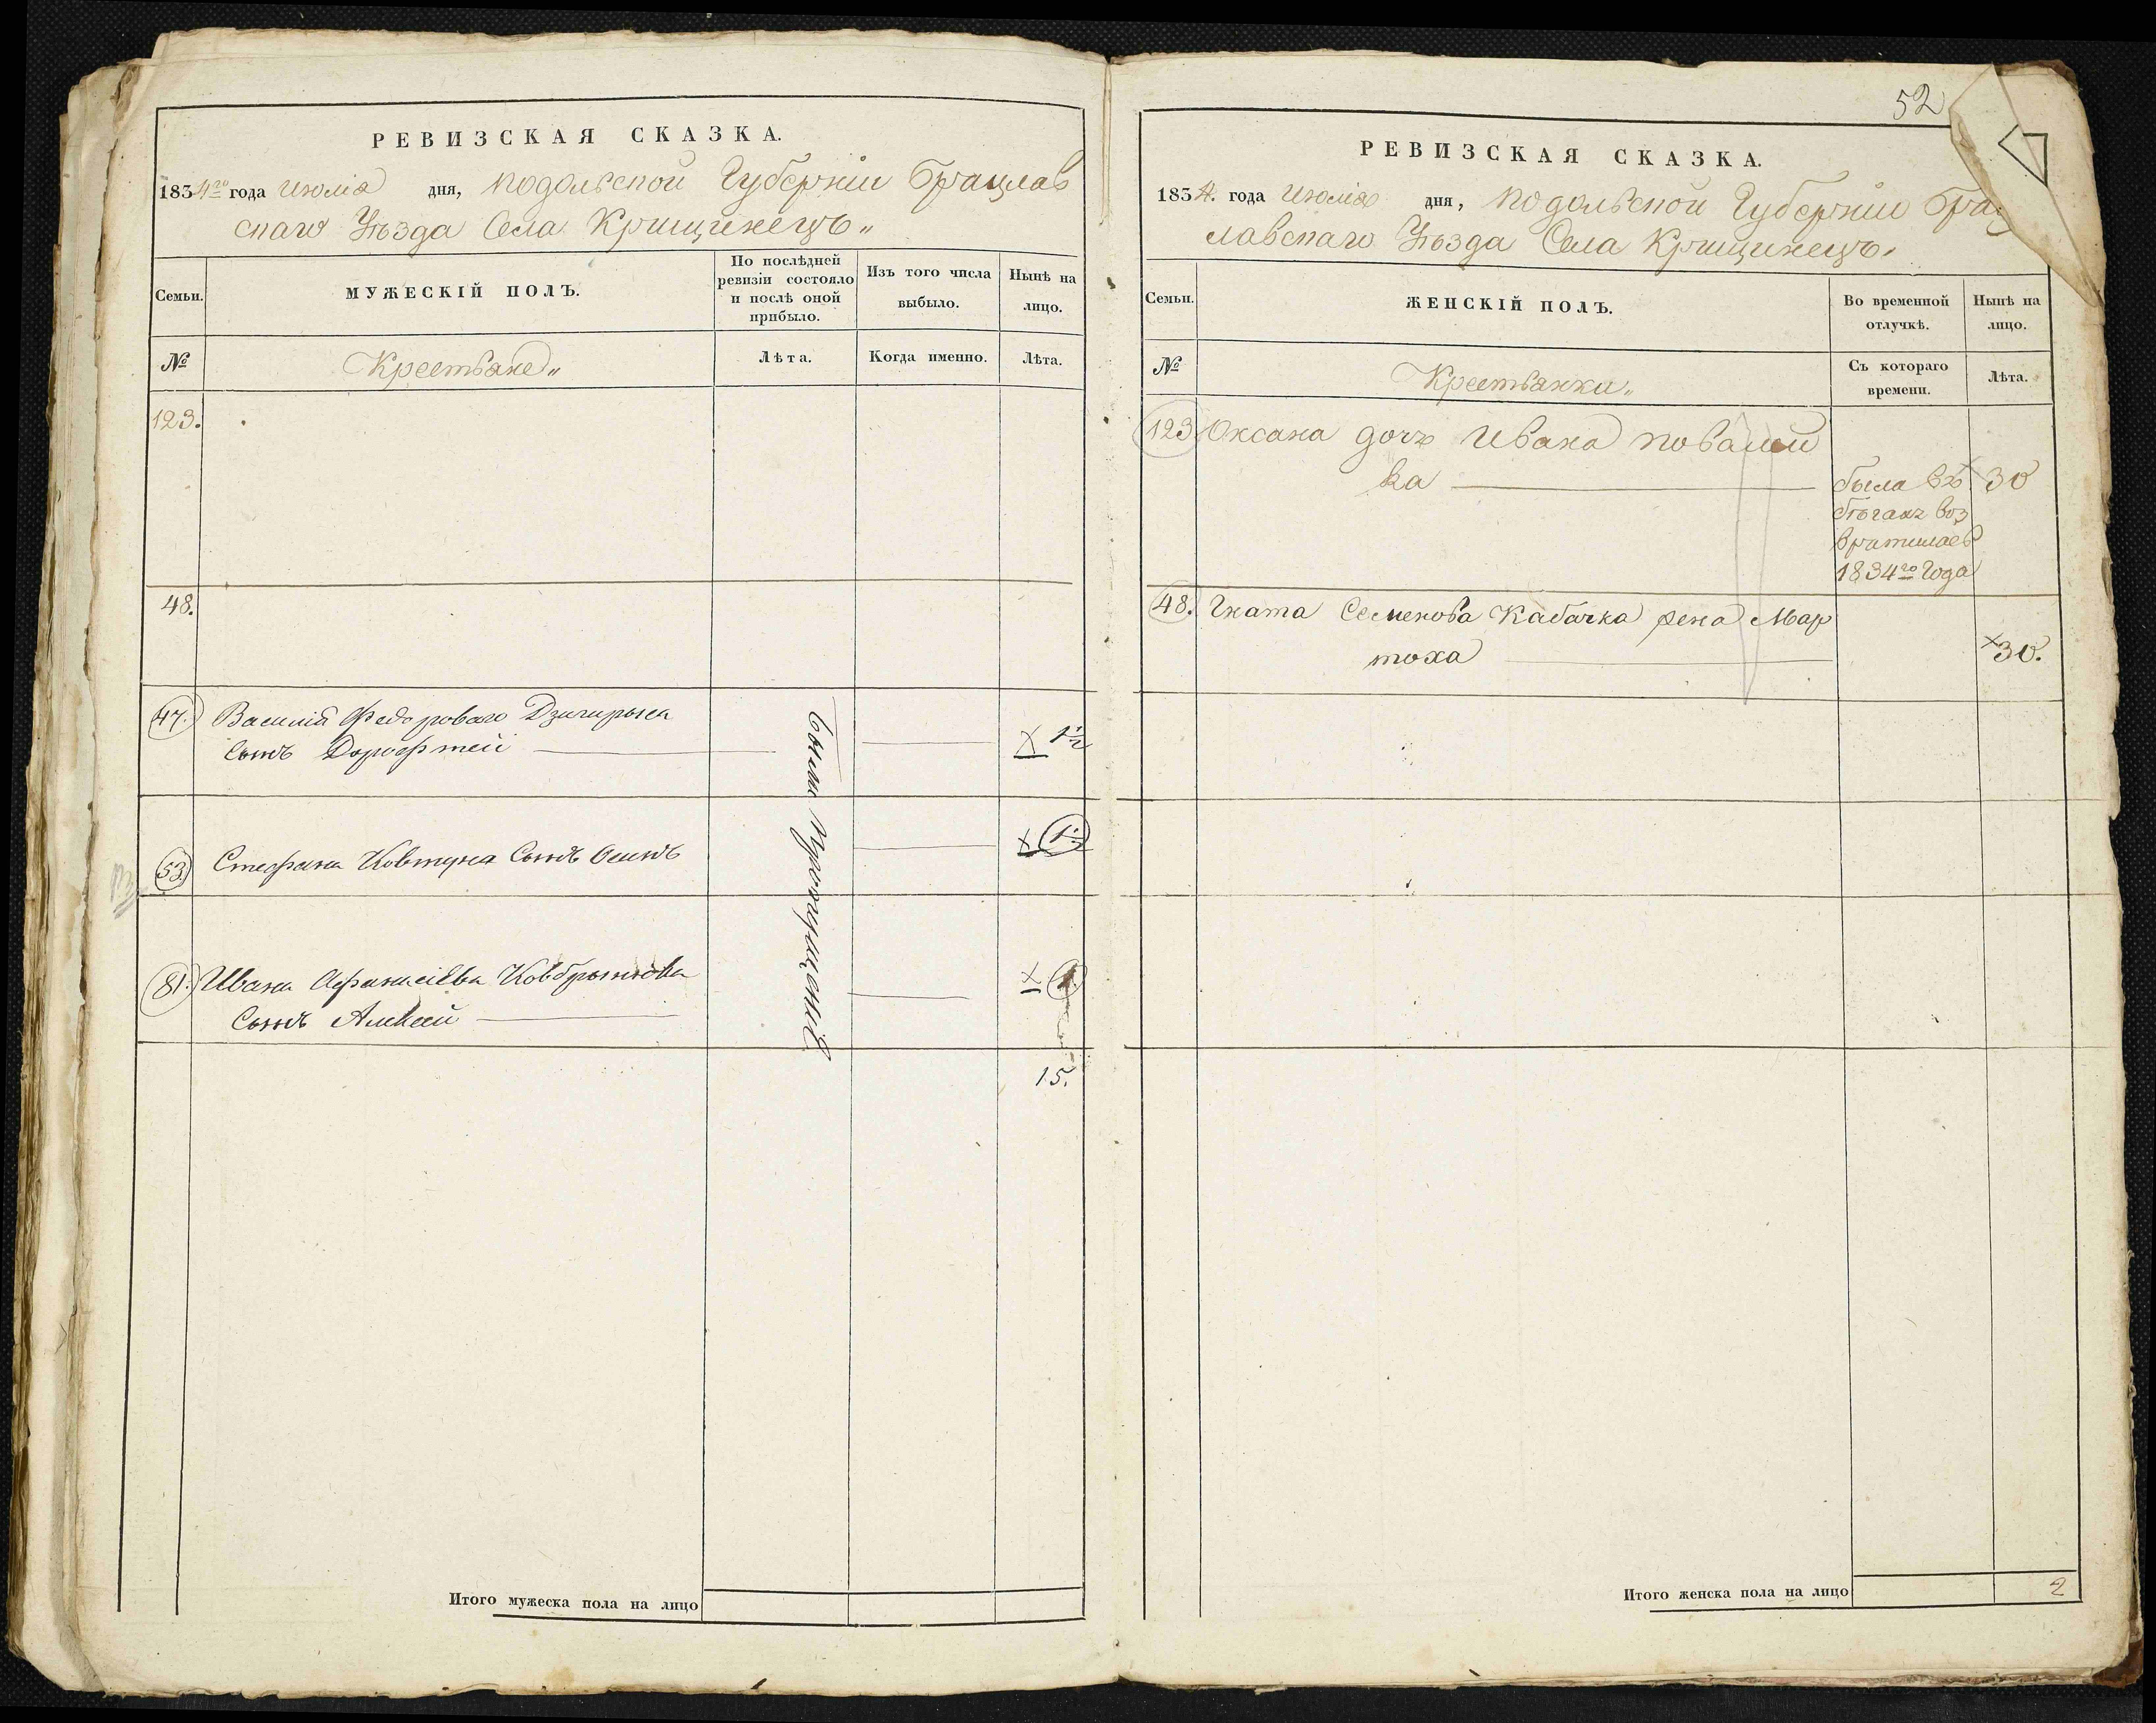 РЕВИЗСКАЯ СКАЗКА.
1834го года Июлія дня, Подольской Губерніи Брацлав
скаго Уѣзда Села Крищинецъ
Семьи.
МУЖЕСКІЙ ПОЛЪ.
По послѣдней ревизіи состояло и послѣ оной прибыло.
Изъ того числа выбыло.
Нынѣ на лицо.
№
Крестьяне
Лѣта.
Когда именно.
Лѣта.
123.
48.
47. Василія Федорова Дзигирына
Сынъ Дорофтей 1½
были пропущеніе
53. Стефана Ковтуна Сынъ Осипъ 1½
81. Ивана Афанасіева
Сынъ Алексей 1
15.
Итого мужеска пола на лицо
52
РЕВИЗСКАЯ СКАЗКА.
1834. года Июлія дня, Подольской Губерніи Брац
лавскаго Уѣзда Села Крищинецъ.
Семьи.
ЖЕНСКІЙ ПОЛЪ.
Во временной отлучкѣ.
Нынѣ на лицо.
№
Крестьянки
Съ котораго времени.
Лѣта.
123 Оксана дочь Ивана
ка была въ 30
бѣгахъ воз
вратилась
1834го года
48. Гната Семенова Кабачка жена Мар
тоха 30.
Итого женска пола на лицо 2